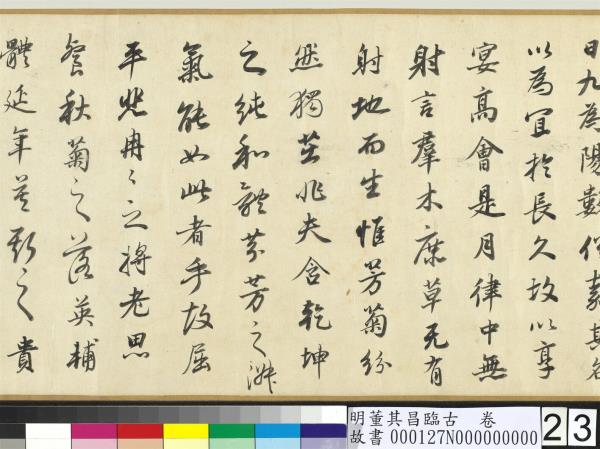 日九為陽數俗嘉其名
以為宜於長久故以享
宴高會是月律中無
射言羣木庶草无有
射地而生惟芳菊紛
然獨榮非夫含乾坤
之純和體芬芳之淑
氣能如此者乎故屈
平悲冉々之將老思
飡秋菊之落英輔
體延年莫斯之貴
明董其昌臨古 卷
故書 000127N000000000
23